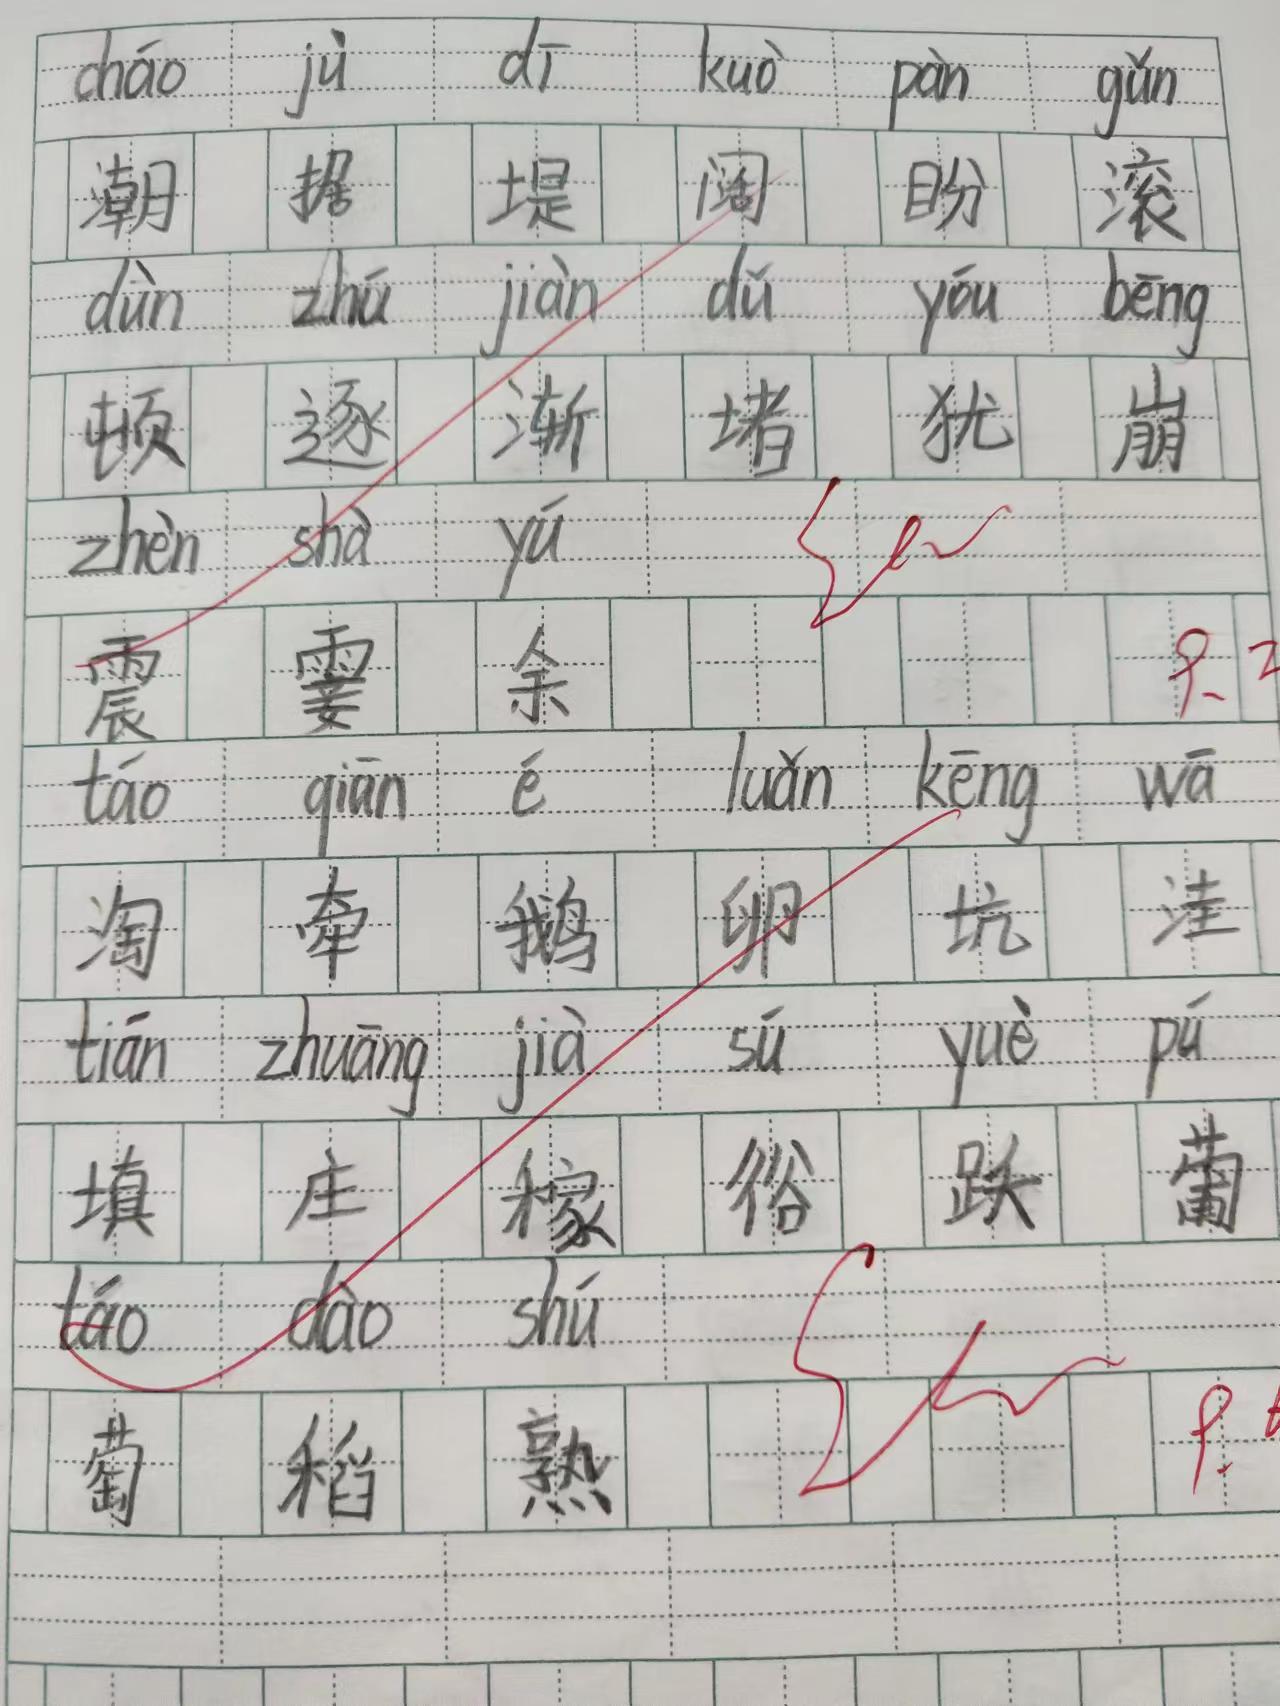 cháo jù dī kuò pàn gǔn
潮 据 堤 阔 盼 滚
dùn zhú jiàn dǔ yóu bēng
顿 逐 渐 堵 犹 崩
zhèn shà yú
震 霎 余
táo qiān é luǎn kēng wā
淘 牵 鹅 卵 坑 洼
tián zhuāng jià sú yuè pú
填 庄 稼 俗 跃 葡
táo dào shú
萄 稻 熟